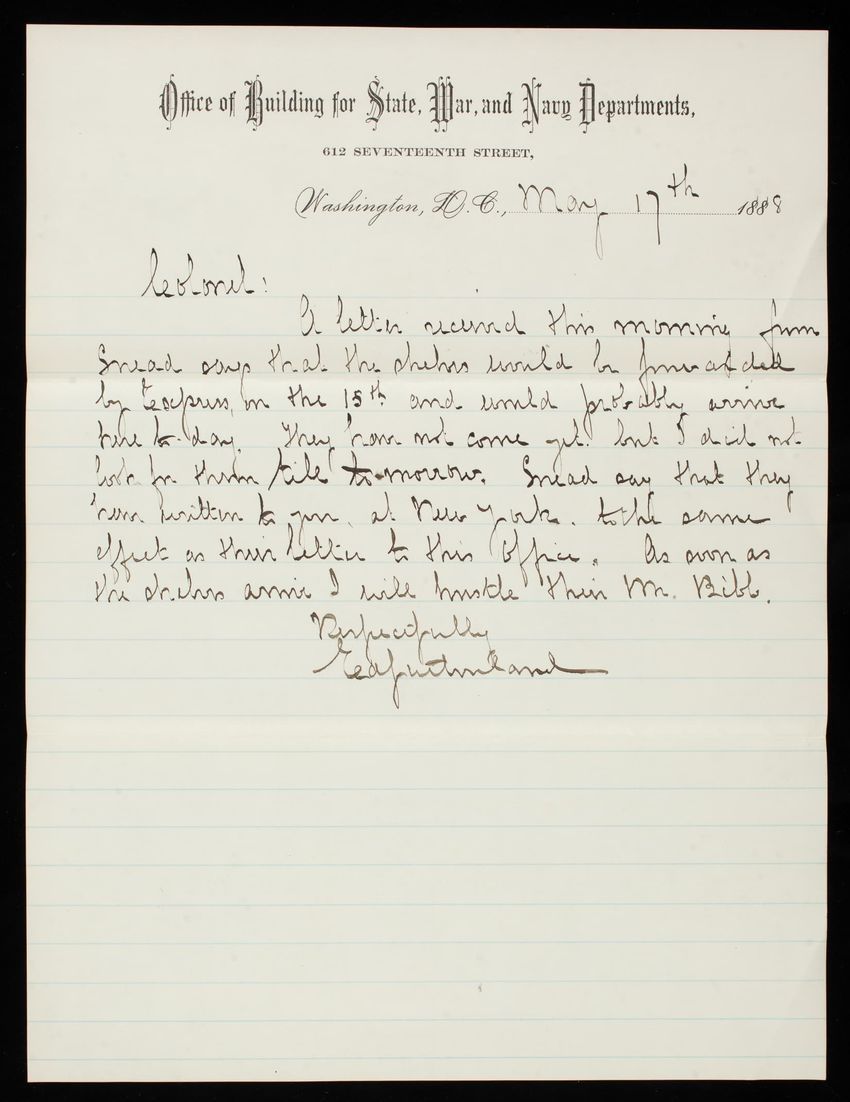 Office of Building for State, War, and Navy Departments,
612 SEVENTEENTH STREET,
Washington, D.C., May 17th 1888
Colonel:
A letter received this morning from
Snead says that the shelves would be forwarded
by Express, on the 15th and would probably arrive
here to-day. They have not come yet. but I did not
look for them till to-morrow. Snead say that they
have written to you, at New York. to the same
effect as their letter to this Office. As soon as
the shelves arrive I will hustle their Mr. Bibb.
Respectfully